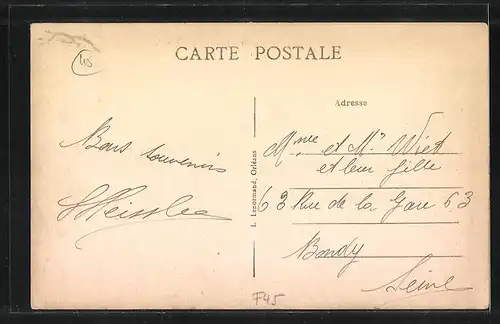 45
CARTE POSTALE
Adresse
Bons souvenirs
L. Lenormand, Orléans
Mme et Mr Wiet
et leur fille
63 Rue de la Gare 63
Bondy
Seine
F45